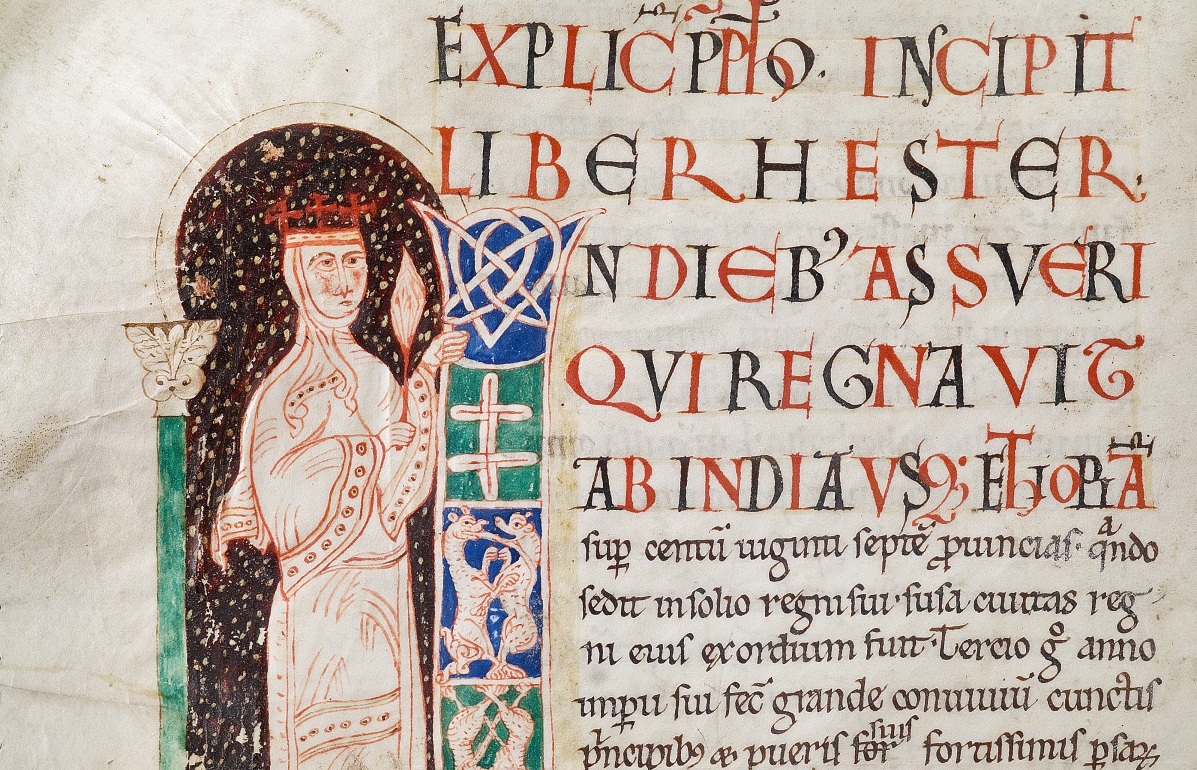 EXPLIC̄ PP̄hO. INCIPIT
LIBER HESTER.
IN DIEB' ASSVERI
QVI REGNAVIT
AB INDIA VSQ; EThIOPIĀ
sup centū uiginti septē ꝓuincias. qᵃndo
sedit in solio regni sui. susa ciuitas reg
ni eius exordium fuit. Tercio gͦ anno
imꝑii sui fec̄ grande conuiuiū cunctis
pͥncipibꝰ ⁊ pueris suis fortissimis ꝑsaꝝ